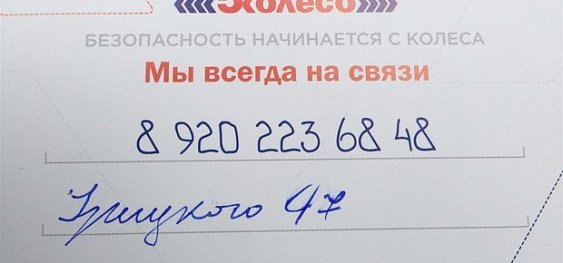 Колесо
БЕЗОПАСНОСТЬ НАЧИНАЕТСЯ С КОЛЕСА
Мы всегда на связи
8 920 223 68 48
Урицкого 47